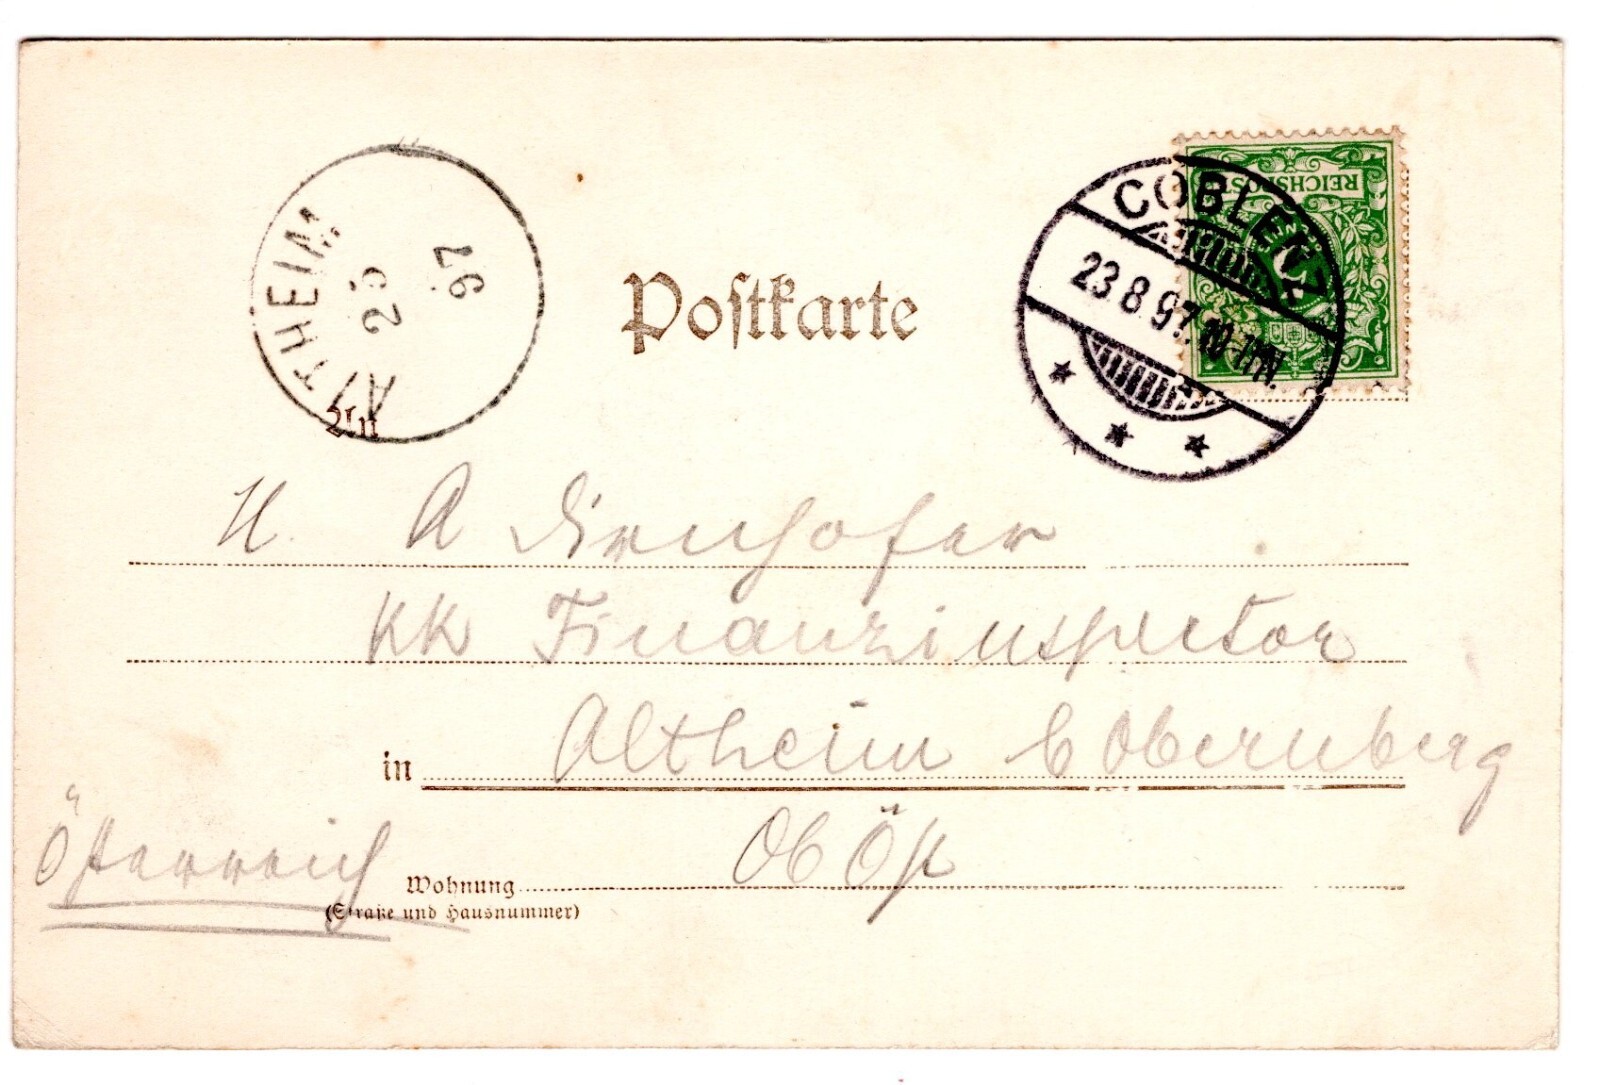 Postkarte
REICHSPOST
COBLENZ
23 8 97. 10-11N.
ALTHEIM
25
97
An
H. A Dirnhofer
KK Finanzinspector
in Altheim b Obernberg
Ob Öst
Österreich
Wohnung
(Straße und Hausnummer)